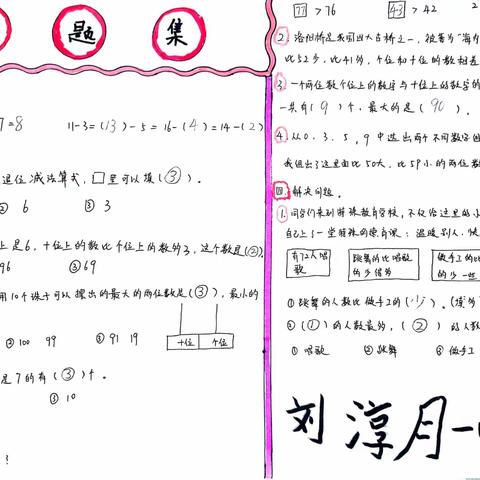 题 集
7=8 11-3=(13)-5=16-(4)=14-(2)
退位减法算式，□里可以填(③)。
② 6 ③ 3
上是6，十位上的数比个位上的数的3，这个数是(②)
96 ③69
用10个珠子可以摆出的最大的两位数是(③)，最小的
十位 个位
②100 99 ③91 19
是7的有(③)个。
③ 10
?
77 > 76 43 > 42 2
2. 洛阳桥是我国四大古桥之一，被誉为"海
比52少，比41多，个位和十位的数相差
3. 一个两位数个位上的数字与十位上的数字的
一共有(9)个，最大的是(90)。
4. 从0、3、5、9中选出两个不同数字组
我组出了这里面比50大，比59小的两位数
四 解决问题。
1. 同学们来到特殊教育学校，不仅给这里的小
自己上了一堂特殊的德育课：温暖别人，快
有12人唱歌 跳舞的比唱歌的少得多 做手工的比
的少一些
①跳舞的人数比做手工的(少)。(填"多
②(①)的人数最多，(②)的人数
① 唱歌 ② 跳舞 ③ 做手工
刘淳月一